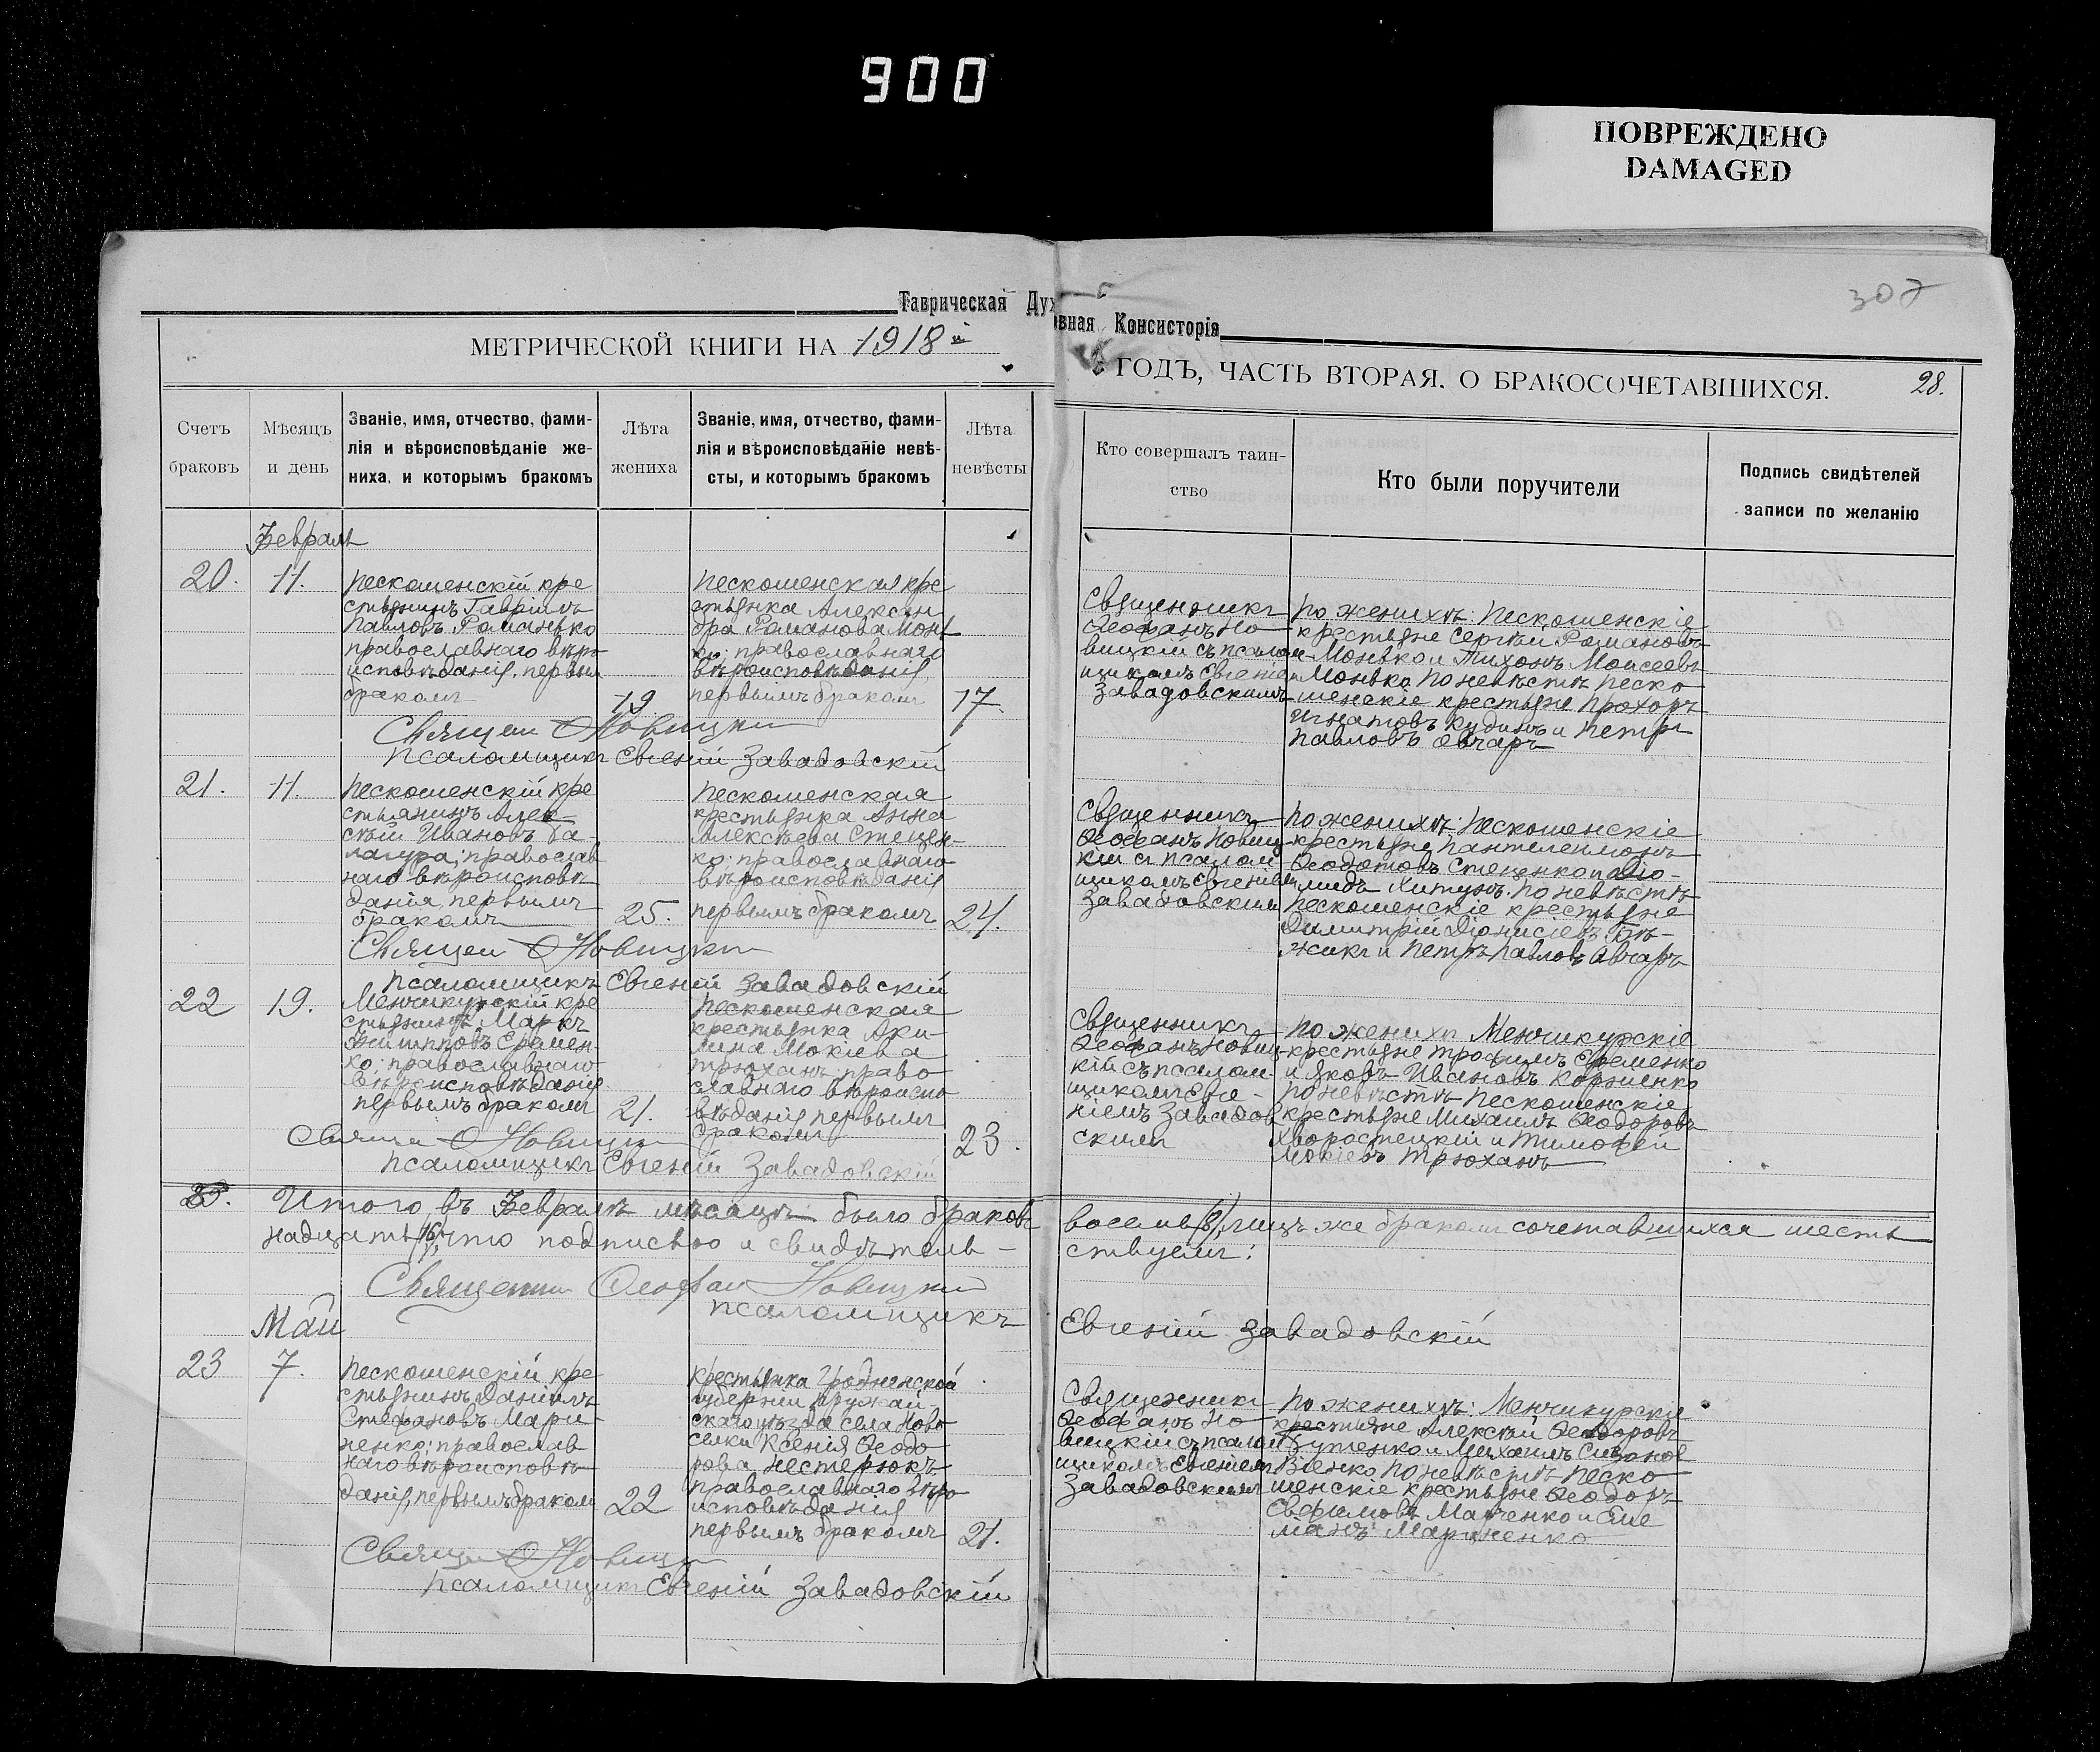 900
ПОВРЕЖДЕНО
DAMAGED
307
Таврическая Духовная Консисторія
МЕТРИЧЕСКОЙ КНИГИ НА 1918 й
ГОДЪ, ЧАСТЬ ВТОРАЯ. О БРАКОСОЧЕТАВШИХСЯ.
28.
Счетъ
браковъ
Мѣсяцъ
и день
Званіе, имя, отчество, фами-
лія и вѣроисповѣданіе же-
ниха, и которымъ бракомъ
Лѣта
жениха
Званіе, имя, отчество, фами-
лія и вѣроисповѣданіе невѣ-
сты, и которымъ бракомъ
Лѣта
невѣсты
Кто совершалъ таин-
ство
Кто были поручители
Подпись свидѣтелей
записи по желанію
Февраль
20.
11.
Пескошенскій кре
стьянинъ Гавріилъ
Павловъ Романько
православнаго вѣро
исповѣданія, первым
бракомъ
19
Пескошенская кре
стьянка Алексан
дра Романова Монь
ко; православнаго
вѣроисповѣданія,
первымъ бракомъ
17.
Священникъ
Ѳеофанъ Но
вицкій съ псалом
щикомъ Евгеніем
Завадовскимъ
По женихѣ: Пескошенскіе
крестьяне Сергѣй Романовъ
Монько и Тихонъ Моисеевъ
Монько По невѣстѣ Песко
шенскіе крестьяне Прохоръ
Игнатовъ Кудинъ и Петръ
Павловъ Овчаръ
Священ Ѳ Новицкій
Псаломщикъ Евгеній Завадовскій
21.
11.
Пескошенскій кре
стьянинъ Алек-
сѣй Ивановъ Ба-
лагура; православ
наго вѣроисповѣ
данія первымъ
бракомъ
25.
Пескошенская
крестьянка Анна
Алексѣева Стецен-
ко; православнаго
вѣроисповѣданія
первымъ бракомъ
24.
Священникъ
Ѳеофанъ Новиц-
кій съ псалом
щикомъ Евгеніем
Завадовским
По женихѣ: Пескошенскіе
крестьяне Пантелеимонъ
Ѳеодотовъ Стеценко и Діо-
мидъ Хитунъ. По невѣстѣ
Пескошенскіе крестьяне
Димитрій Діонисіевъ Бѣ-
жикъ и Петръ Павловъ Овчаръ
Священ Ѳ Новицкій
Псаломщикъ Евгеній Завадовскій
22
19.
Менчикурскій кре
стьянинъ Маркъ
Филипповъ Еремен-
ко; православнаго
вѣроисповѣданія
первымъ бракомъ
21.
Пескошенская
крестьянка Аки-
лина Мокіева
Трюханъ право
славнаго вѣроиспо
вѣданія первымъ
бракомъ
23.
Священникъ
Ѳеофанъ Новиц-
кій съ псалом
щикомъ Евге-
ніемъ Завадов
скимъ
По женихѣ Менчикурскіе
крестьяне Трофимъ Еременко
и Яковъ Ивановъ Корніенко
По невѣстѣ Пескошенскіе
крестьяне Михаилъ Ѳеодоровъ
Хворостецкій и Тимофей
Мокіевъ Трюханъ
Священ Ѳ Новицкій
Псаломщикъ Евгеній Завадовскій
Итого въ Февралѣ мѣсяцѣ было браковъ восемь (8), лицъ же бракомъ сочетавшихся шесть
надцать (16), что подписью и свидѣтель-ствуемъ:
Священникъ Ѳеофан Новицкій
Псаломщикъ Евгеній Завадовскій
Май
23
7.
Пескошенскій кре
стьянинъ Даніилъ
Стефановъ Мари-
ненко; православ
наго вѣроисповѣ
данія, первымъ бракомъ
22
Крестьянка Гродненской
губерніи Пружан-
скаго уѣзда села Ново
селки Ксенія Ѳеодо
рова Нестерюкъ
православнаго вѣро
исповѣданія
первымъ бракомъ
21.
Священникъ
Ѳеофанъ Но
вицкій съ псалом
щикомъ Евгеніем
Завадовскимъ
По женихѣ: Менчикурскіе
крестьяне Алексѣй Ѳеодоровъ
и Михаилъ
По невѣстѣ Песко
шенскіе крестьяне Ѳеодоръ
Евфимовъ Марченко и Еме
льянъ Мариненко
Священ Ѳ Новицкій
Псаломщикъ Евгеній Завадовскій